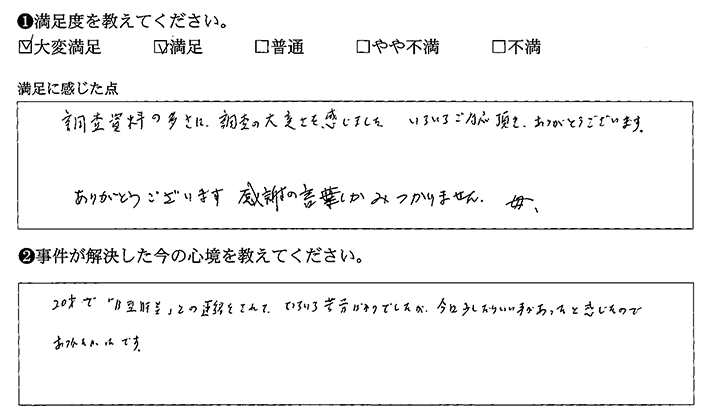 ❶満足度を教えてください。
☑大変満足 ☑満足 □普通 □やや不満 □不満
満足に感じた点
調査資料の多さに、調査の大変さを感じました いろいろご対応頂き、ありがとうございます。
ありがとうございます 感謝の言葉しかみつかりません。 母、
❷事件が解決した今の心境を教えてください。
20才で「B型肝炎」との連絡をされて、いろいろ苦労ばかりでしたが、今日
と感じたので
です。